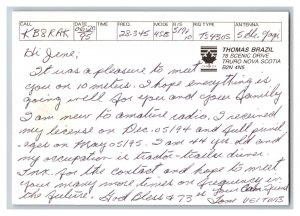 CALL DATE TIME FREQ. MODE R/S RIG TYPE ANTENNA
KB8RAK 95 28.345 SSB TS430S 5 ele. Yagi
Hi Gene;
THOMAS BRAZIL
78 SCENIC DRIVE
TRURO NOVA SCOTIA
B2N 4N5
It was a pleasure to meet
you on 10 meters. I hope everything is
going well for you and your family
I am new to amateur radio, I received
my license on Dec. 05/94 and full
on May 05/95. I am 44 yr old and
my occupation is tractor-trailer driver.
Tnx for the contact and hope to meet
you many more times on frequency in
the future. God Bless & 73 Your Friend
Tom